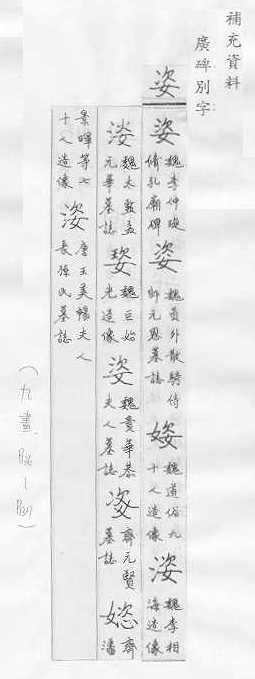 補充資料
廣碑別字
姿
姿 魏李仲璇脩孔廟碑 姿 魏員外散騎侍郎元恩墓誌 姿 魏道俗九十人造像 姿 魏李相海造像
姿 魏太監孟元華墓誌 姿 魏巨始光造像 姿 魏貴華恭夫人墓誌 姿 齊元賢墓誌 姿 齊潘
景暉等七十人造像 姿 唐王美暢夫人長孫氏墓誌
(九畫 P36-P37)